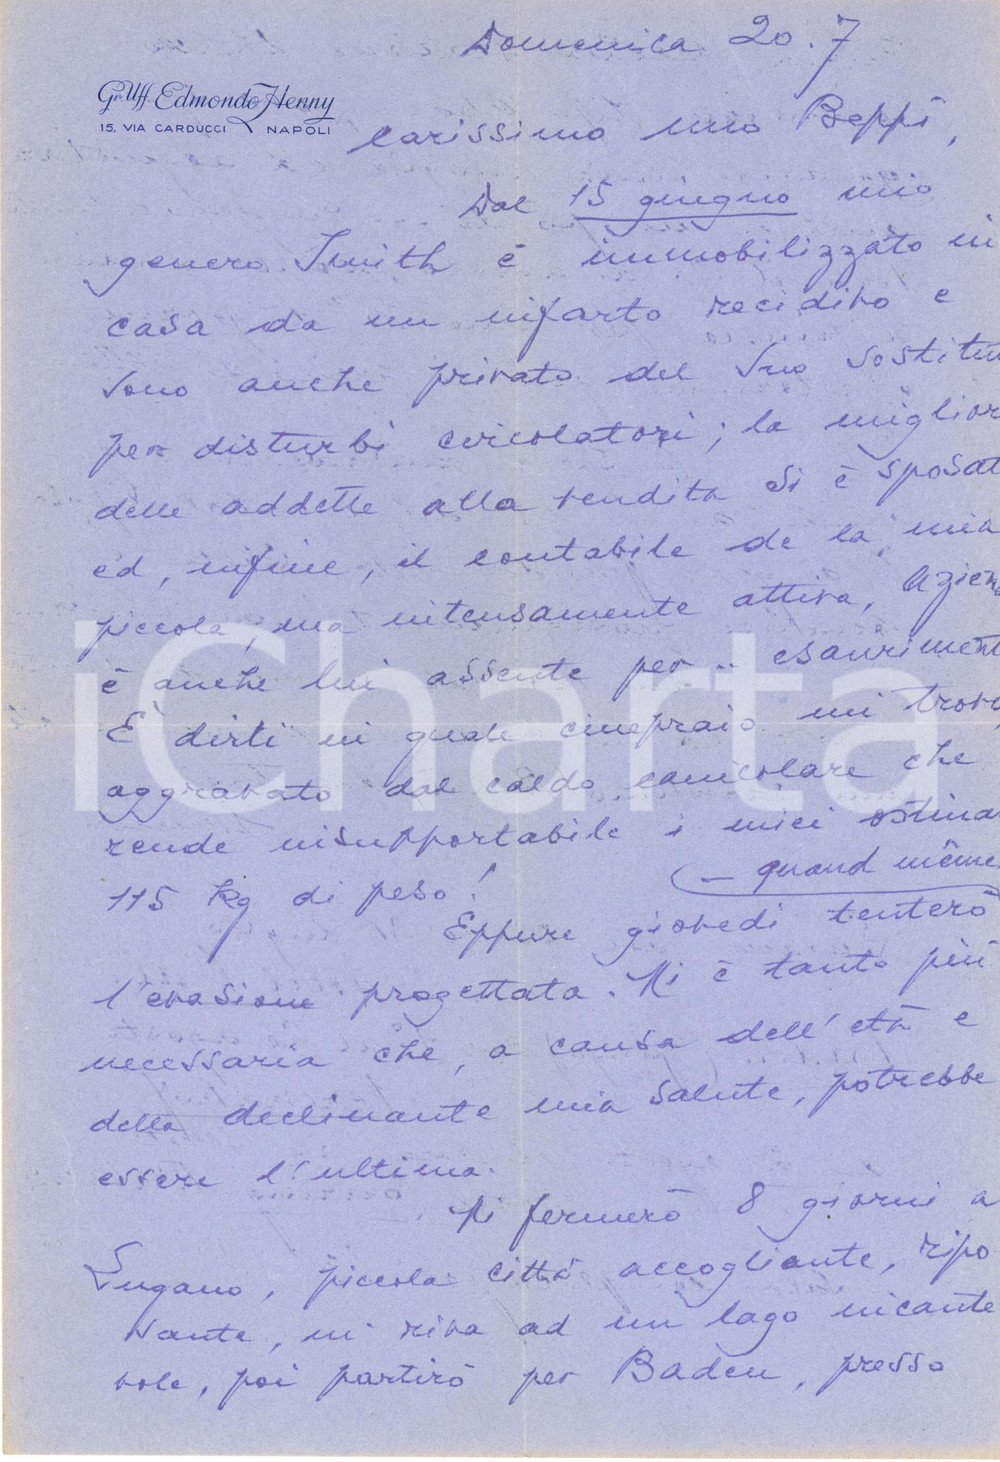 Domenica 20.7
Gr. Uff. Edmondo Henny
15, VIA CARDUCCI NAPOLI
Carissimo mio Beppi,
Dal 15 giugno mio
genero Smith è immobilizzato in
casa da un infarto recidivo e
sono anche privato del suo sostitu
per disturbi circolatori; la miglior
delle addette alla vendita si è sposat
ed, infine, il contabile de la mia
piccola, ma intensamente attiva, Azien
è anche lui assente per .. esauriment
È dirti in quale cinepraio mi trov
aggravato dal caldo canicolare che
rende insupportabile i miei ostina
115 kg di peso!
(– quand même
Eppure giovedì tenterò
l'evasione progettata. Mi è tanto più
necessaria che, a causa dell'età e
della declinante mia salute, potrebbe
essere l'ultima.
Mi fermerò 8 giorni a
Lugano, piccola città accogliante, ripo
sante, in riva ad un lago incante
vole, poi partirò per Baden, presso
iCharta